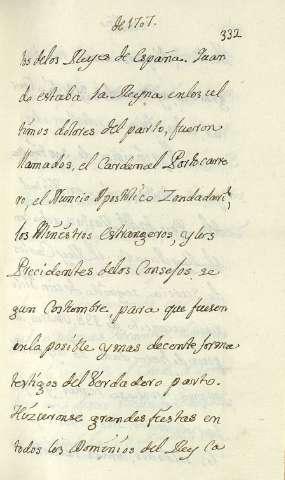 de 1707.
332
tos delos Reyes de España. Quan
do estaba la Reyna enlos ul
timos dolores del parto, fueron
llamados, el Cardenal Portocarre
ro, el Nuncio Apostolico Zondadari,
los Ministros Estrangeros, y los
Precidentes delos Consejos se
gun Costombre, para que fuesen
enla posible y mas decente forma
testigos del Verdadero parto.
Hizieronse grandes fiestas en
todos los Dominios del Rey Ca